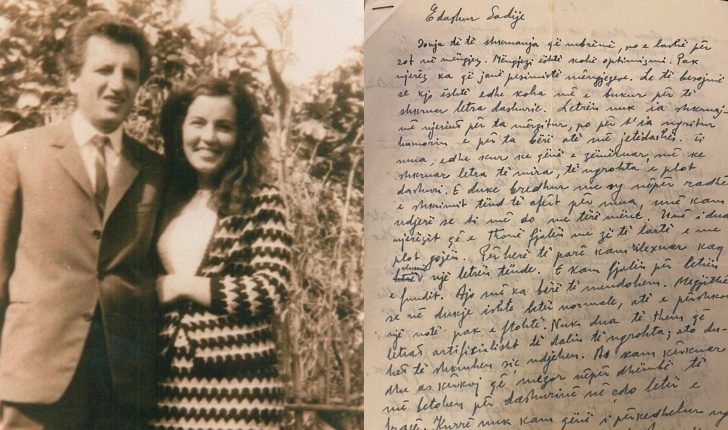 E dashur Sadije
Doja të të shkruaja që mbrëmë, po e lashë për
sot në mëngjes. Mëngjezi është kohë optimizmi. Pak
njerëz ka që janë pesimistë mëngjezeve. de të besojmë
se kjo është edhe koha më e bukur për të
shkruar letra dashurie. Letrën nuk ia shkruaj-
më njeriut për ta mërzitur, po për t'ia ngritur
humorin e për ta bërë atë më jetëdashës. Ti
mua, edhe kur ke qënë e zëmëruar, më ke
shkruar letra të mira, të ngrohta e plot
dashuri. E duke bredhur me sy nëpër radhë
e shkrimit tënd të afërt për mua, unë kam
ndjerë se ti më do me tërë mënt. Unë i dua
njerëzit që e thonë fjalën me zë të lartë e me
plot gojën. Për herë të parë kam lexuar kaq
shumë një letrën tënde. E kam fjalën për letrën
e fundit. Ajo më ka bërë të mendohem. Megjithë
se në dukje ishte letër normale, atë e përshkon
një notë pak e ftohtë. Nuk dua të them që
letrat artificialisht të dalin të ngrohta; ato du-
het të shkruhen siç ndjehen. As kam kërkuar
dhe as kërkoj që vetëm nëpër dhëmbë të
më betohen për dashurinë në çdo letër e
Kurrë nuk kam qënë i përkëdhelur